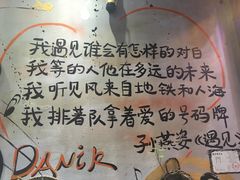 我遇见谁会有怎样的对白
我等的人他在多远的未来
我听见风来自地铁和人海
我排着队拿着爱的号码牌
孙燕姿《遇见》